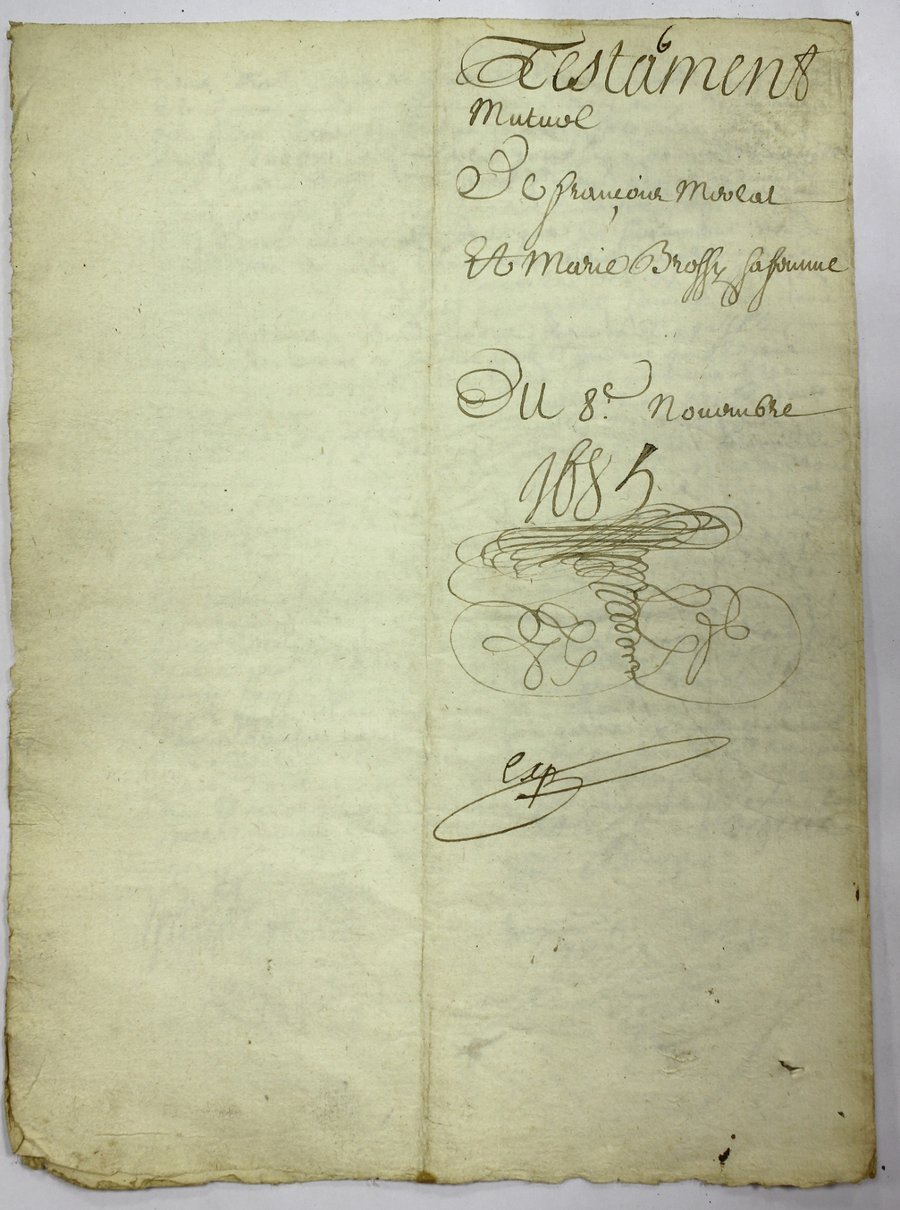 6
Testament
Mutuel
De françois Moolat
Et Marie Brossy sa femme
Du 8e. Novembre
1685
exp